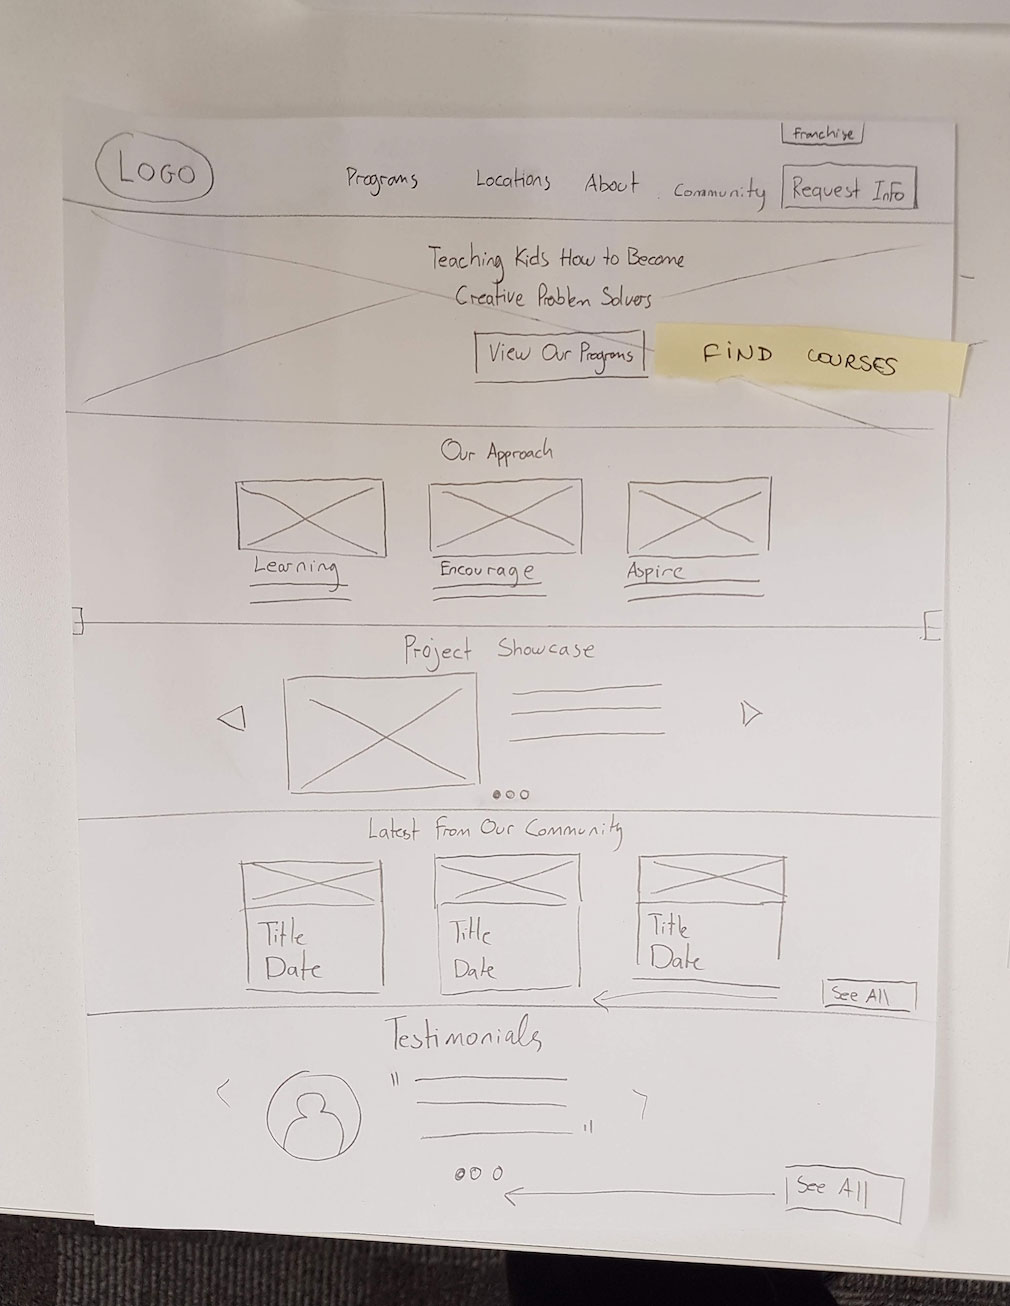 Franchise
LOGO
Programs Locations About Community Request Info
Teaching Kids How to Become
Creative Problem Solvers
View Our Programs FIND COURSES
Our Approach
Learning Encourage Aspire
Project Showcase
Latest From Our Community
Title Title Title
Date Date Date
See All
Testimonials
" "
See All